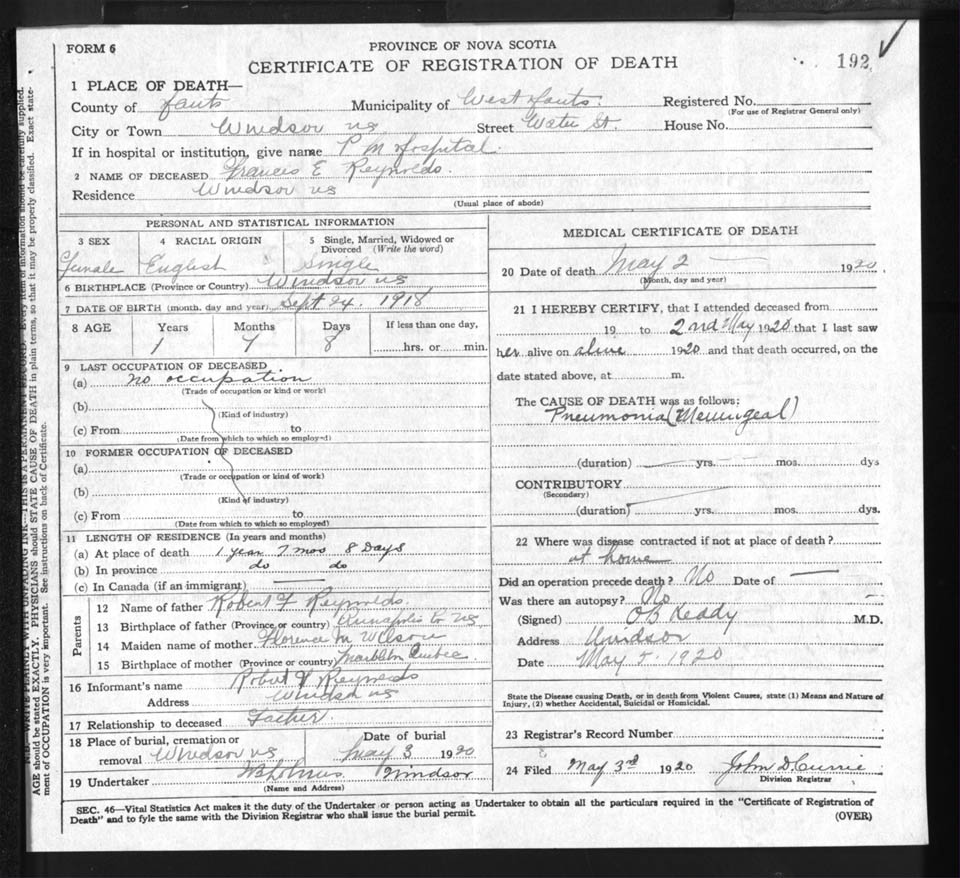 FORM 6
PROVINCE OF NOVA SCOTIA
CERTIFICATE OF REGISTRATION OF DEATH
192
1 PLACE OF DEATH—
County of Hants Municipality of West Hants. Registered No.
(For use of Registrar General only)
City or Town Windsor NS Street Water St. House No.
If in hospital or institution, give name P M Hospital.
2 NAME OF DECEASED Frances E Reynolds.
Residence Windsor NS
(Usual place of abode)
PERSONAL AND STATISTICAL INFORMATION
3 SEX 4 RACIAL ORIGIN 5 Single, Married, Widowed or Divorced (Write the word)
Female English Single
6 BIRTHPLACE (Province or Country) Windsor NS
7 DATE OF BIRTH (month, day and year) Sept 24. 1918
8 AGE Years Months Days If less than one day,
1 7 8 hrs. or min.
9 LAST OCCUPATION OF DECEASED
(a) no occupation
(Trade or occupation or kind or work)
(b)
(Kind of industry)
(c) From to
(Date from which to which so employed)
10 FORMER OCCUPATION OF DECEASED
(a)
(Trade or occupation or kind of work)
(b)
(Kind of industry)
(c) From to
(Date from which to which so employed)
11 LENGTH OF RESIDENCE (In years and months)
(a) At place of death 1 year 7 mos 8 Days
(b) In province do do
(c) In Canada (if an immigrant)
Parents
12 Name of father Robert F Reynolds.
13 Birthplace of father (Province or country) Annapolis Co NS
14 Maiden name of mother Florence M Wilson
15 Birthplace of mother (Province or country) Quebec
16 Informant's name Robert F Reynolds
Address Windsor NS
17 Relationship to deceased Father.
18 Place of burial, cremation or removal Windsor NS Date of burial May 3 1920
19 Undertaker Windsor
(Name and Address)
MEDICAL CERTIFICATE OF DEATH
20 Date of death May 2 1920
(Month, day and year)
21 I HEREBY CERTIFY, that I attended deceased from
19 to 2nd May 1920 that I last saw
her alive on alive 1920 and that death occurred, on the
date stated above, at m.
The CAUSE OF DEATH was as follows:
Pneumonia (Meningeal)
(duration) yrs. mos. dys
CONTRIBUTORY
(Secondary)
(duration) yrs. mos. dys.
22 Where was disease contracted if not at place of death?
at home
Did an operation precede death? No Date of
Was there an autopsy? No
(Signed) O B Keddy M.D.
Address Windsor
Date May 5. 1920
State the Disease causing Death, or in death from Violent Causes, state (1) Means and Nature of
Injury, (2) whether Accidental, Suicidal or Homicidal.
23 Registrar's Record Number
24 Filed May 3rd 1920 John D Currie
Division Registrar
SEC. 46—Vital Statistics Act makes it the duty of the Undertaker or person acting as Undertaker to obtain all the particulars required in the "Certificate of Registration of
Death" and to fyle the same with the Division Registrar who shall issue the burial permit.
(OVER)
N.B.—WRITE PLAINLY WITH UNFADING INK—THIS IS A PERMANENT RECORD. Every item of information should be carefully supplied.
AGE should be stated EXACTLY. PHYSICIANS should STATE CAUSE OF DEATH in plain terms, so that it may be properly classified. Exact state-
ment of OCCUPATION is very important. See instructions on back of Certificate.